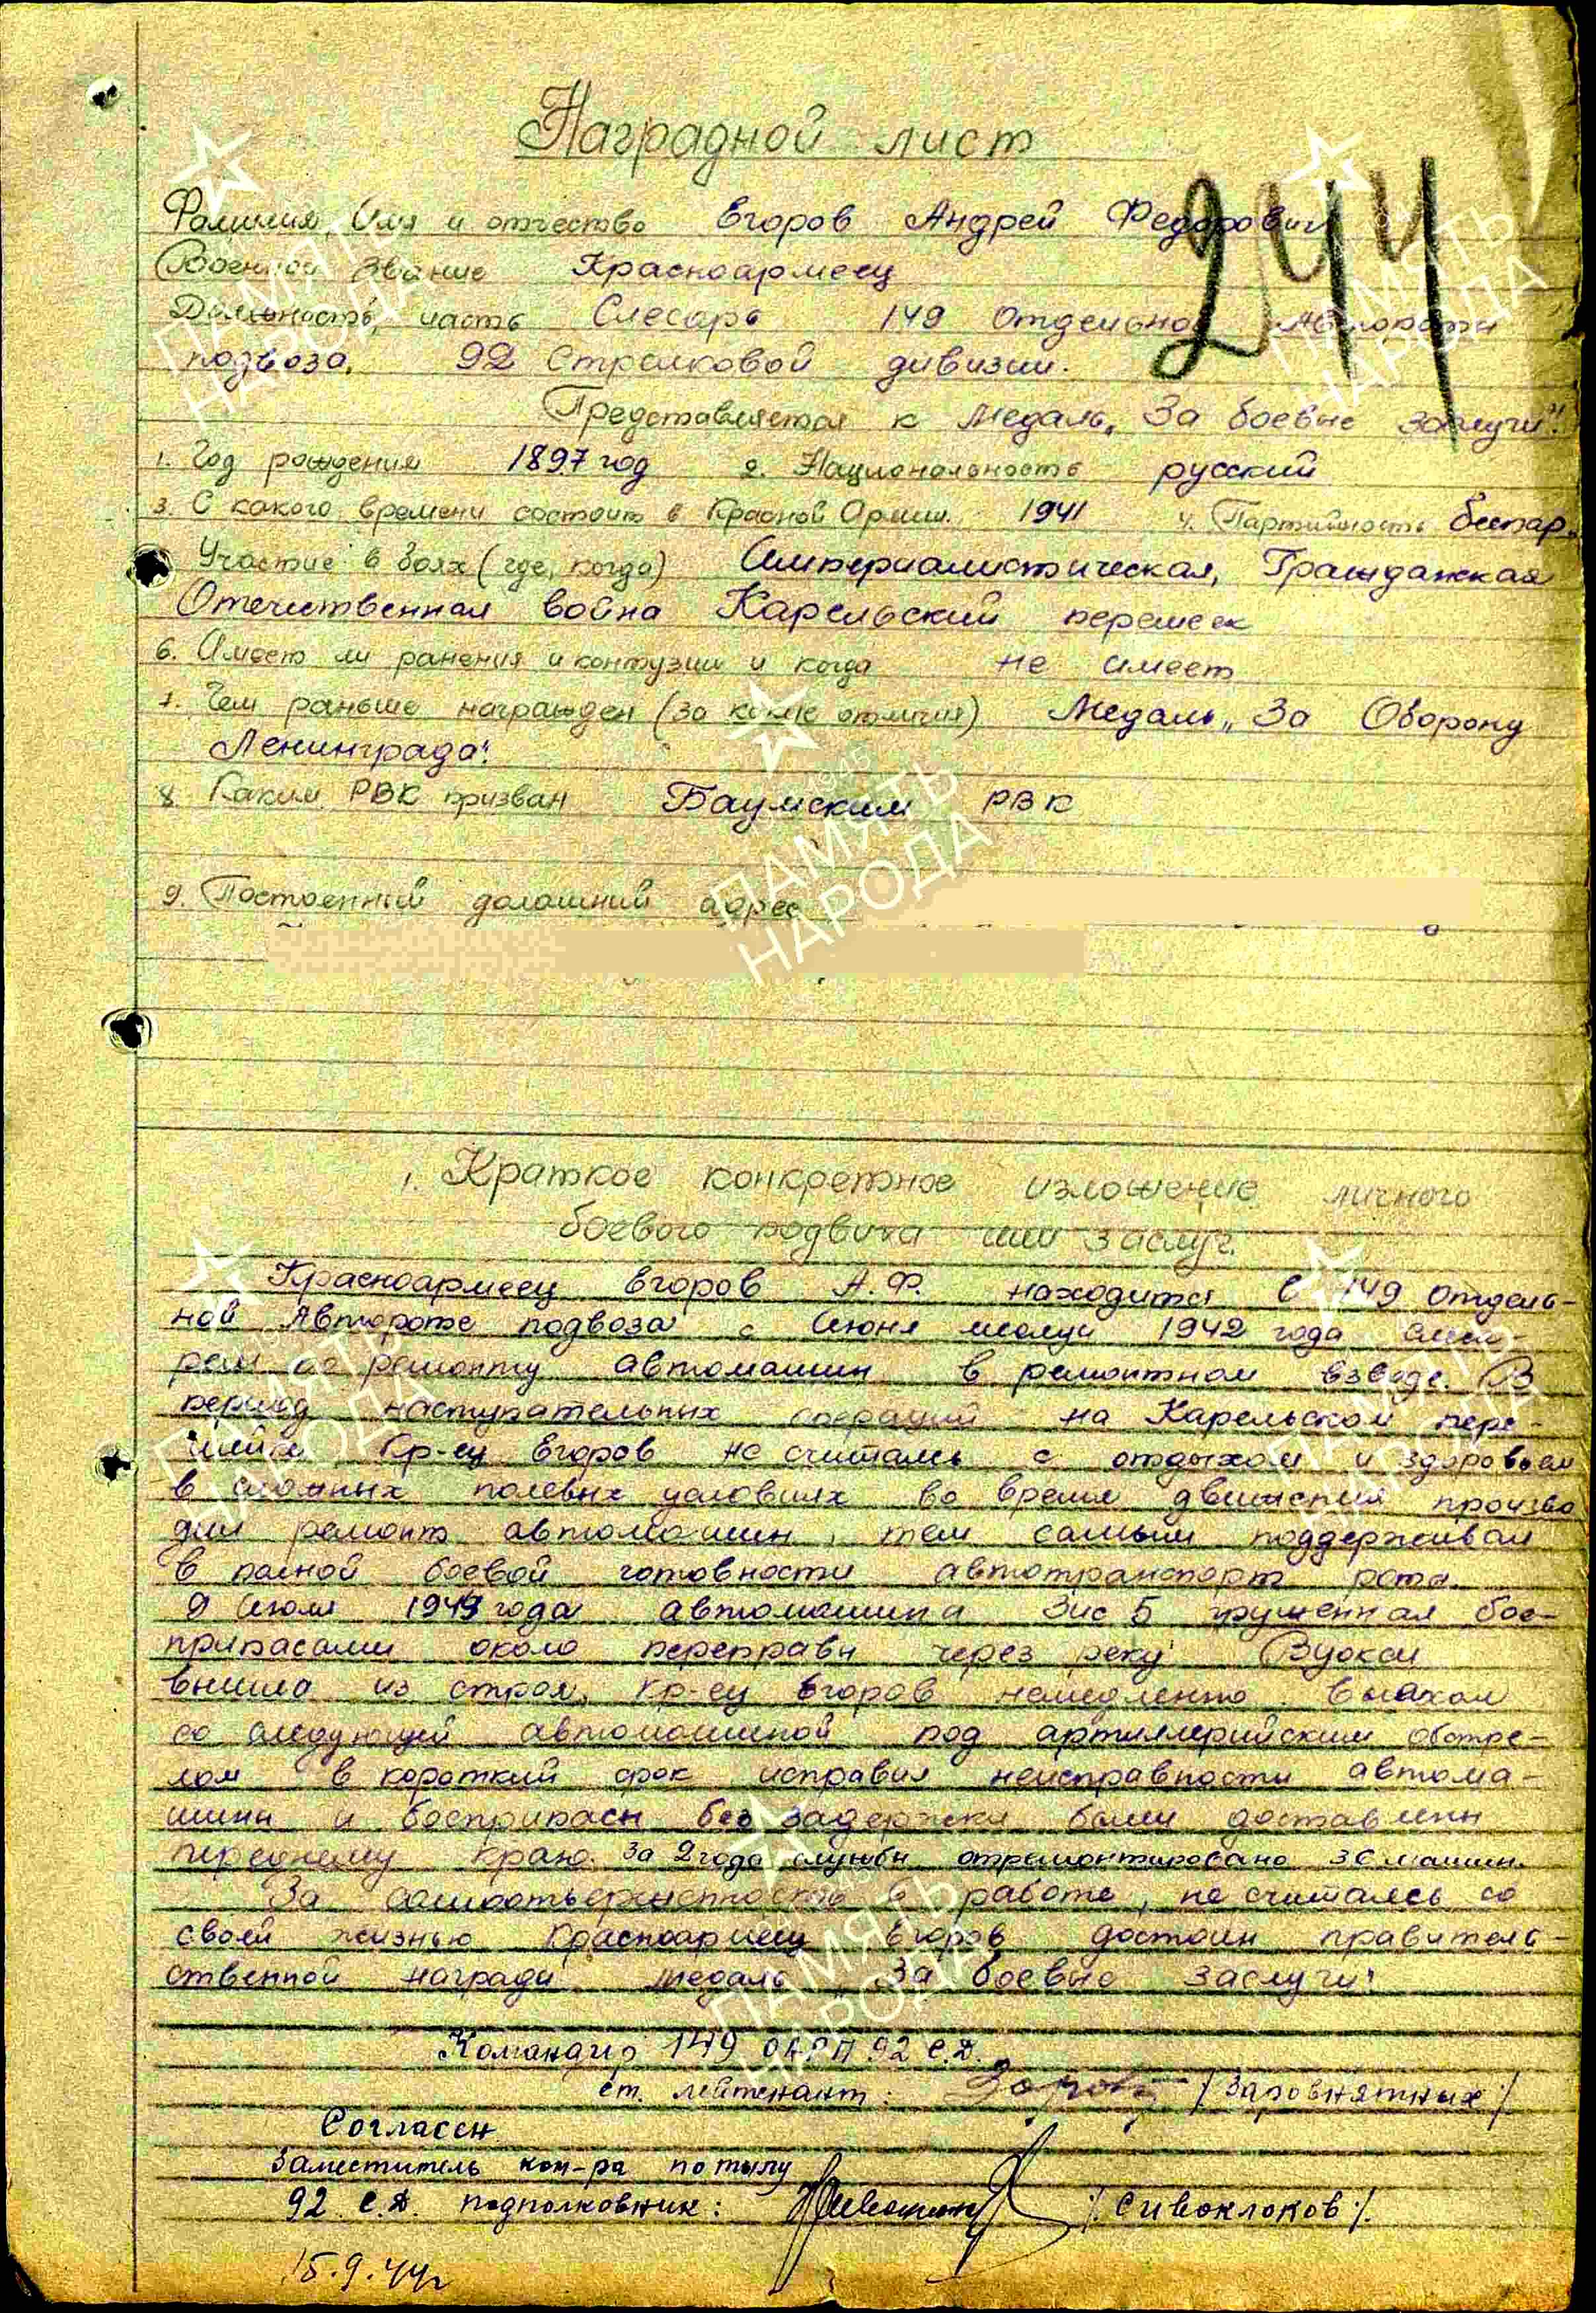 Наградной лист
244
Фамилия, Имя и отчество Егоров Андрей Федорович
Военное звание Красноармеец
Должность, часть Слесарь 149 отдельной Автороты
подвоза, 92 Стрелковой дивизии.
Представляется к Медаль „За боевые заслуги".
1. Год рождения 1897 год 2. Национальность русский
3. С какого времени состоит в Красной Армии. 1941 4. Партийность беспар.
Участие в боях (где, когда) Империалистическая, Гражданская
Отечественная война Карельский перешеек
6. Имеет ли ранения и контузии и когда не имеет
7. Чем раньше награжден (за какие отличия) Медаль „За Оборону
Ленинграда".
8. Каким РВК призван Баумским РВК
9. Постоенный домашний адрес
1. Краткое конкретное изложение личного
боевого подвига или заслуг.
Красноармеец Егоров А.Ф. находится в 149 отдель-
ной Автороте подвоза с Июня месяца 1942 года
по ремонту автомашин в ремонтном взводе. В
период наступательных операций на Карельском пере-
шейке Кр-ец Егоров не считаясь с отдыхом и здоровьем
в сложных полевых условиях во время движения произво
дил ремонт автомашин, тем самым поддерживал
в полной боевой готовности автотранспорт роты.
9 Июля 1944 года автомашина Зис 5 груженная бое-
припасами около переправы через реку Вуокси
вышла из строя, кр-ец Егоров немедленно выехал
со следующей автомашиной под артиллерийским обстре-
лом в короткий срок исправил неисправности автома-
шины и боеприпасы без задержки были доставлены
переднему краю. За 2 года службы отремонтировано 36 машин.
За самоотверженность в работе, не считаясь со
своей жизнью Красноармеец Егоров достоин правитель-
ственной награды медаль „За боевые заслуги"
Командир 149 ОАРП 92 С.Д.
ст. лейтенант: /Заровнятных/
Согласен
Заместитель ком-ра по тылу
92 С.Д. подполковник: /Сивоклоков/.
15.9.44г
ПАМЯТЬ НАРОДА
ПАМЯТЬ НАРОДА
ПАМЯТЬ НАРОДА
ПАМЯТЬ НАРОДА
ПАМЯТЬ НАРОДА
ПАМЯТЬ НАРОДА